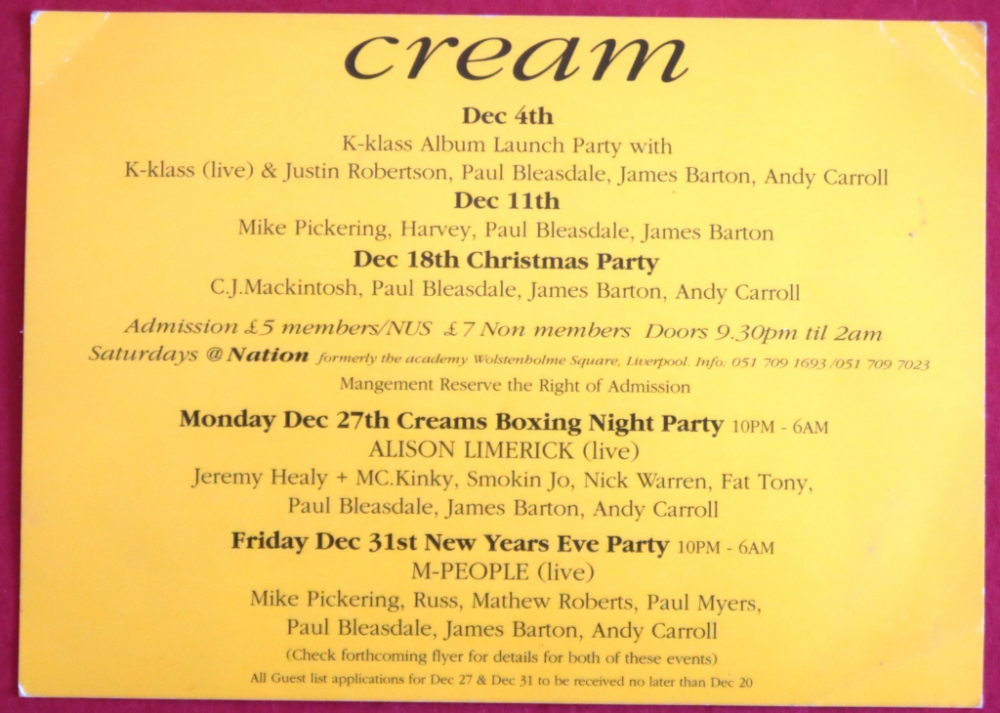 cream
Dec 4th
K-klass Album Launch Party with
K-klass (live) & Justin Robertson, Paul Bleasdale, James Barton, Andy Carroll
Dec 11th
Mike Pickering, Harvey, Paul Bleasdale, James Barton
Dec 18th Christmas Party
C.J.Mackintosh, Paul Bleasdale, James Barton, Andy Carroll
Admission £5 members/NUS £7 Non members Doors 9.30pm til 2am
Saturdays @ Nation formerly the academy Wolstenholme Square, Liverpool. Info: 051 709 1693 /051 709 7023
Mangement Reserve the Right of Admission
Monday Dec 27th Creams Boxing Night Party 10PM - 6AM
ALISON LIMERICK (live)
Jeremy Healy + MC.Kinky, Smokin Jo, Nick Warren, Fat Tony,
Paul Bleasdale, James Barton, Andy Carroll
Friday Dec 31st New Years Eve Party 10PM - 6AM
M-PEOPLE (live)
Mike Pickering, Russ, Mathew Roberts, Paul Myers,
Paul Bleasdale, James Barton, Andy Carroll
(Check forthcoming flyer for details for both of these events)
All Guest list applications for Dec 27 & Dec 31 to be received no later than Dec 20